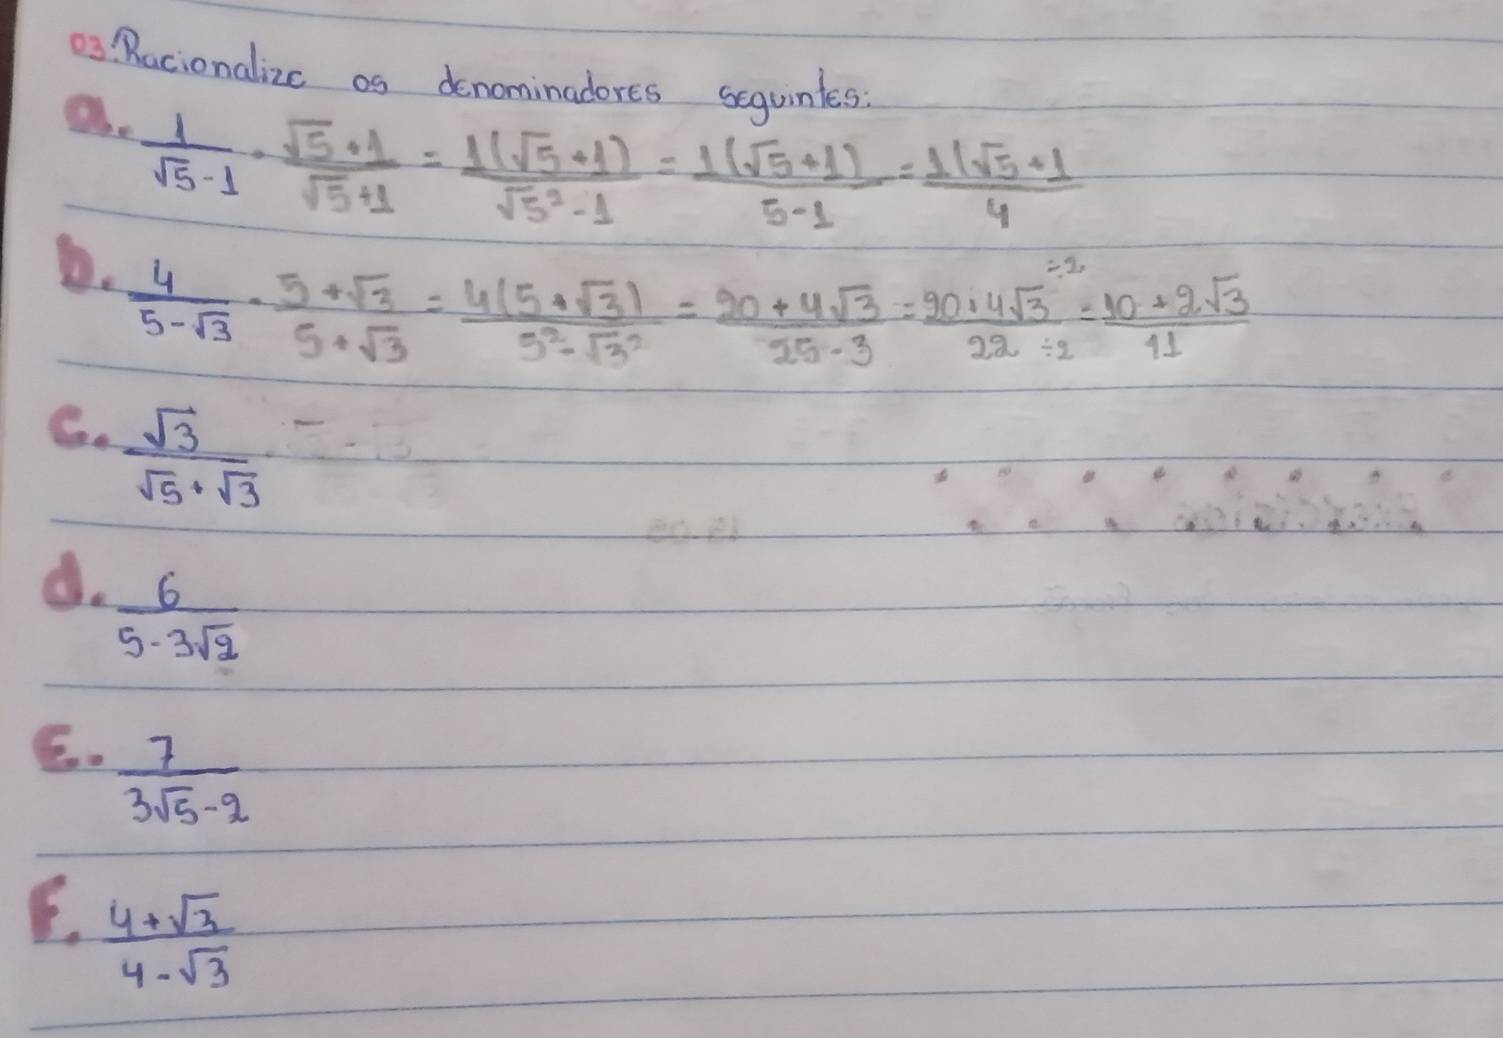 03. Racionalize os denominadores seguintes:
a. 1/(√5-1) · (√5+1)/(√5+1) = 1(√5+1)/(√5²-1) = 1(√5+1)/(5-1) = 1(√5+1/4
b. 4/(5-√3) · (5+√3)/(5+√3) = 4(5+√3)/(5²-√3²) = (20+4√3)/(25-3) = (20+4√3)÷2/22÷2 = (10+2√3)/11
c. √3/(√5+√3)
d. 6/(5-3√2)
E. 7/(3√5-2)
F. (4+√3)/(4-√3)